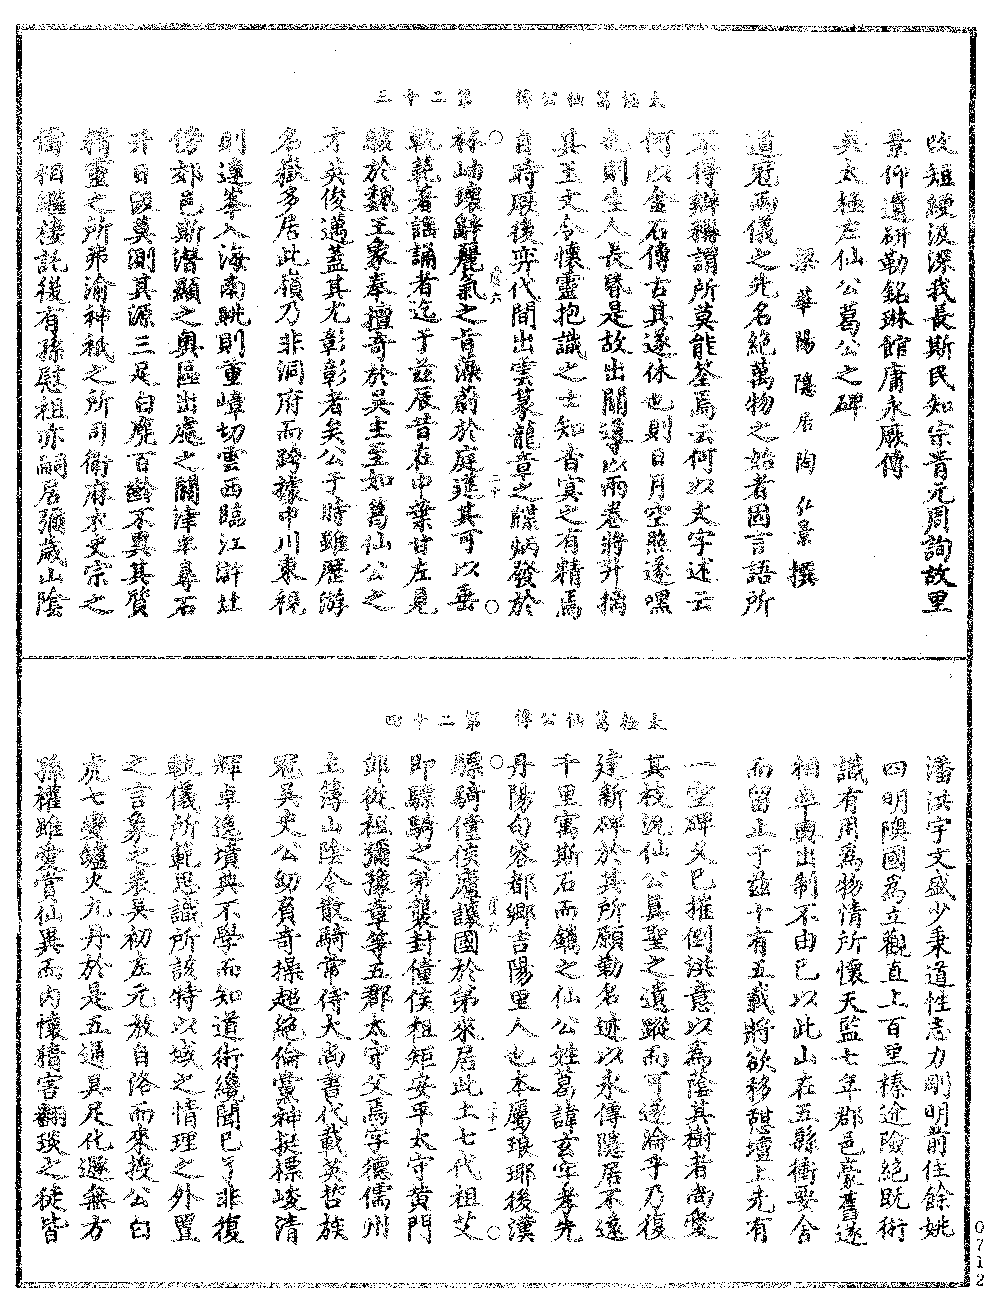 太極葛仙公傳 第二十三
啟短綆汲深我長斯民知宗胄元周詢故里
景仰遺研勒銘琳館庸永厥傳
吳太極左仙公葛公之碑
梁華陽隱居陶弘景撰
道冠兩儀之先名絕萬物之始者固言語所
不得辯稱謂所莫能筌焉云何以文字述云
何以金石傳古其遂休也則日月空照遂嘿
也則生人長昏是故出關導以兩卷將升摛
其至文令懷靈抱識之士知杳冥之有精焉
自時厥後奕代間出雲篆龍章之牒炳發於
林岫瓌辭麗氣之旨藻蔚於庭筵其可以垂
軌範著謠誦者迄于茲辰昔在中葉甘左見
駭於魏王象奉擅奇於吳主至如葛仙公之
才英俊邁蓋其尤彰彰者矣公于時雖歷游
名嶽多居此嶺乃非洞府而跨據中川東視
則連峯入海南眺則重嶂切雲西臨江滸北
傍郊邑斯潛顯之奧區出處之關津半尋石
井日汲莫測其源三足白麂百齡不異其質
精靈之所弗渝神祇之所司衛麻衣史宗之
儔相繼棲託後有孫慰祖亦嗣居彌歲山陰
太極葛仙公傳 第二十四
潘洪字文盛少秉道性志力剛明前住餘姚
四明隩國為立觀直上百里榛途險絕既術
識有用為物情所懷天監七年郡邑豪舊遂
相率輿出制不由己以此山在五縣衝要舍
而留止于茲十有五載將欲移憩壇上先有
一空碑久已摧倒洪意以為蔭其樹者尚愛
其枝況仙公真聖之遺蹤而可遂淪乎乃復
建新碑於其所願勒名迹以永傳隱居不遠
千里寓斯石而鐫之仙公姓葛諱玄字孝先
丹陽句容都鄉吉陽里人也本屬琅琊後漢
驃騎僮侯廬讓國於弟來居此土七代祖艾
即驃騎之弟襲封僮侯祖矩安平太守黃門
郎從祖彌豫章等五郡太守父焉字德儒州
主簿山陰令散騎常侍大尚書代載英哲族
冠吳史公幼負奇操超絕倫黨神挺標峻清
輝卓逸墳典不學而知道術纔聞已了非復
軌儀所範思識所該特以域之情理之外置
之言象之表吳初左元放自洛而來授公白
虎七變爐火九丹於是五通具足化遯無方
孫權雖愛賞仙異而內懷猜害翻琰之徒皆
0712